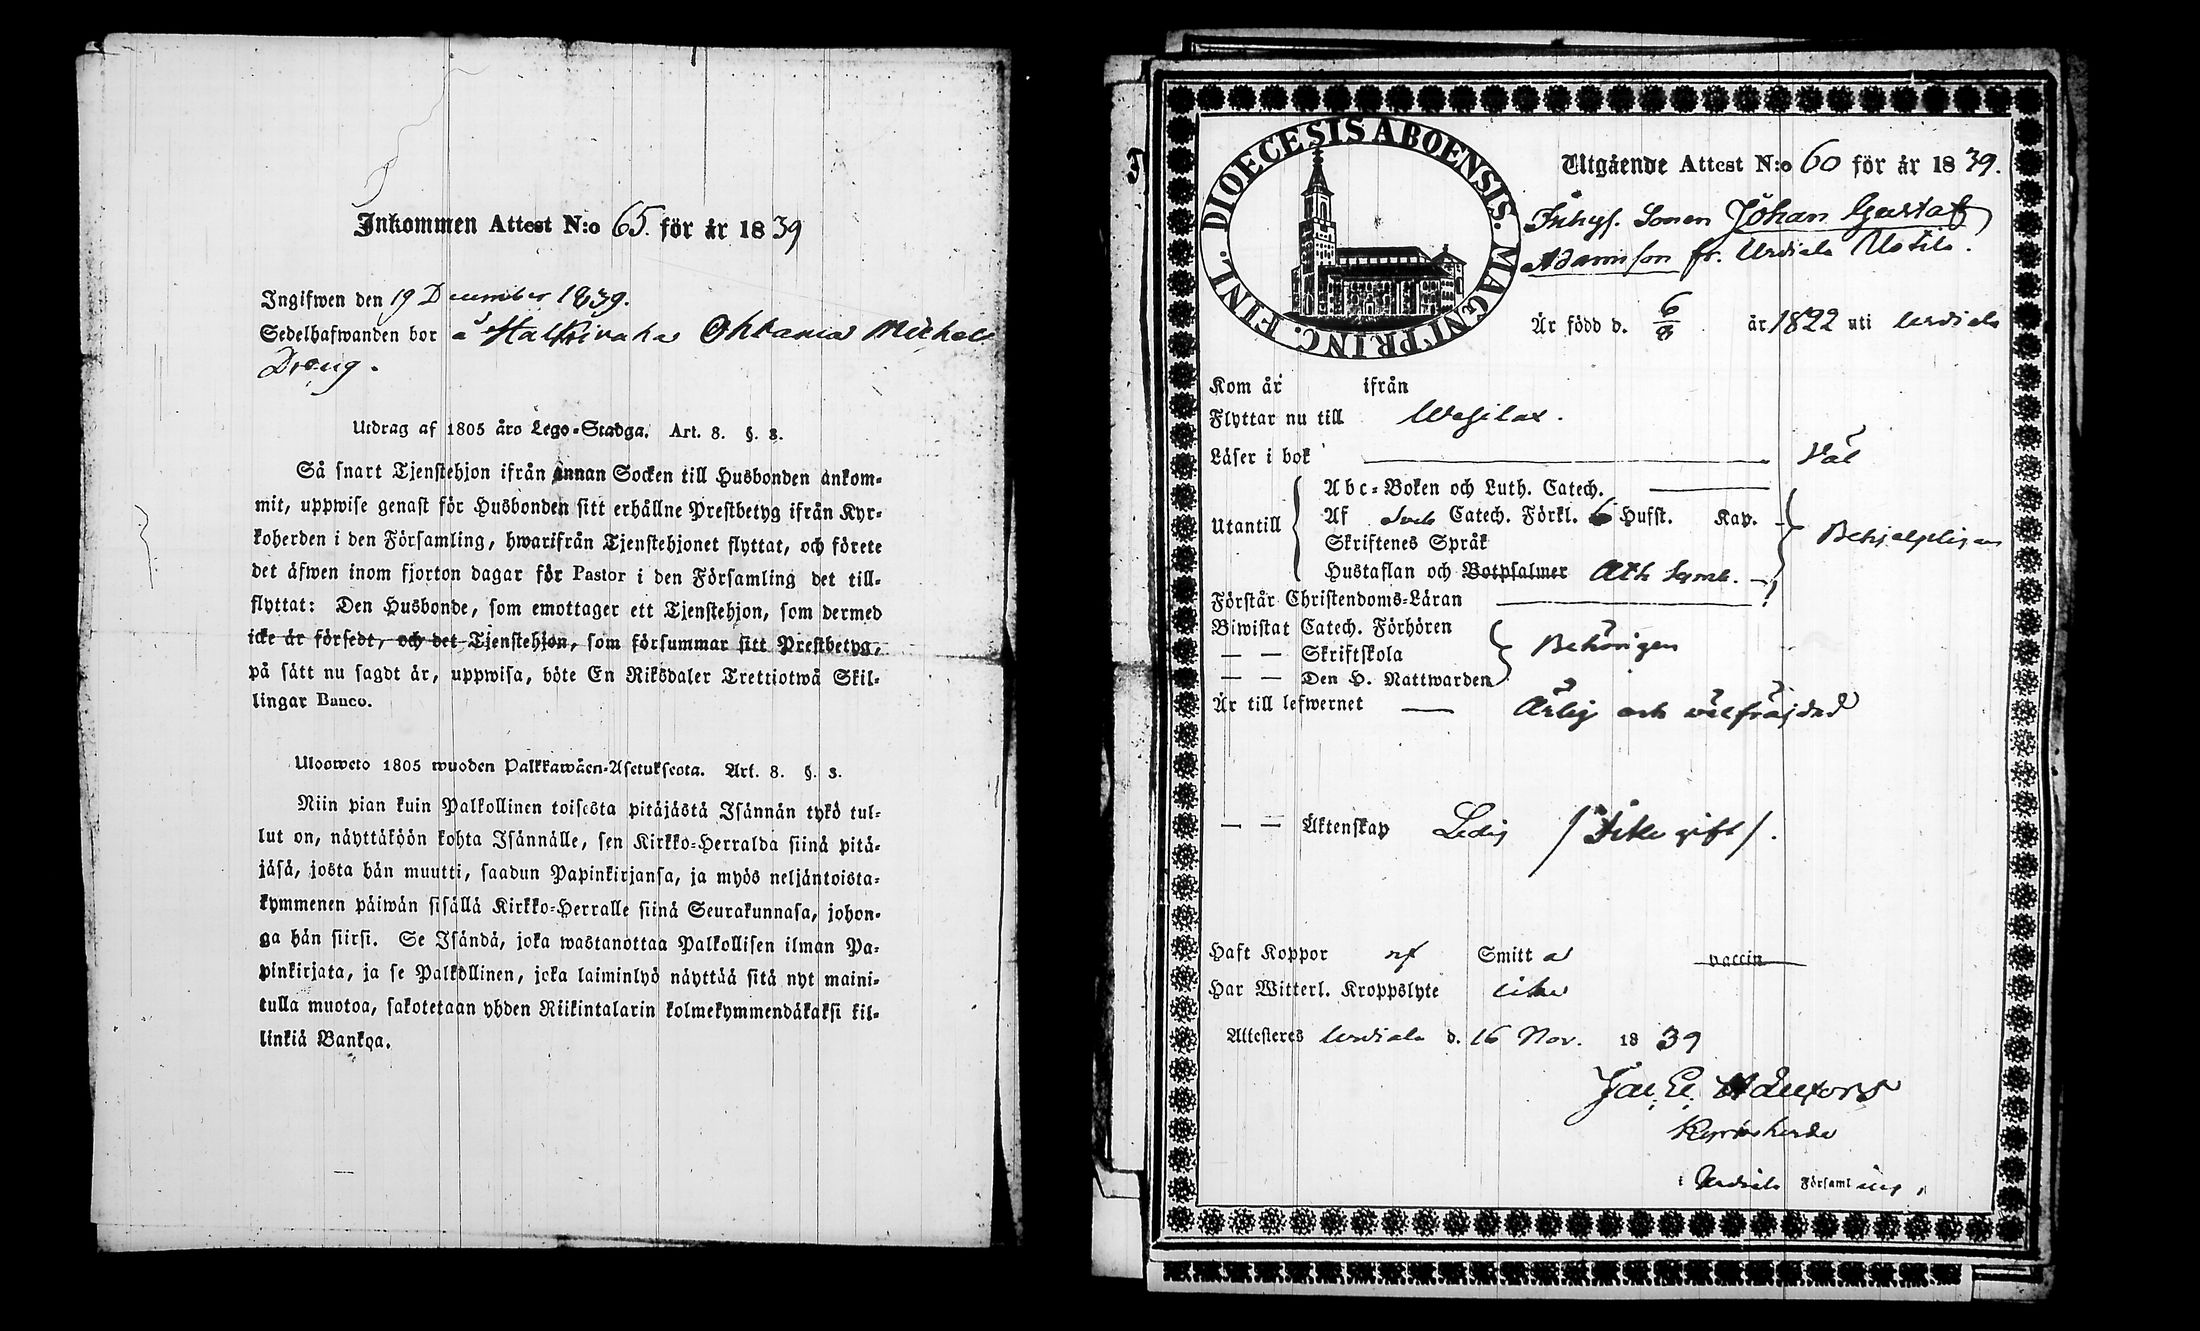 Inkommen Attest N:o 65. för år 1839
Ingifwen den 19 December 1839.
Sedelhafwanden bor å Halkivaha Ohtama Michels
Dreng.
Utdrag af 1805 års Lego-Stadga. Art. 8. §. 3.
Så snart Tjenstehjon ifrån annan Socken till Husbonden ankom-
mit, uppwise genast för Husbonden sitt erhållne Prestbetyg ifrån Kyr-
koherden i den Församling, hwarifrån Tjenstehjonet flyttat, och förete
det äfwen inom fjorton dagar för Pastor i den Församling det till-
flyttat: Den Husbonde, som emottager ett Tjenstehjon, som dermed
icke är försedt, och det Tjenstehjon, som försummar sitt Prestbetyg,
på sätt nu sagdt är, uppwisa, böte En Riksdaler Trettiotwå Skil-
lingar Banco.
Ulosweto 1805 wuoden Palkkawäen-Asetuksesta. Art. 8. §. 3.
Niin pian kuin Palkollinen toisesta pitäjästä Isännän tykö tul-
lut on, näyttäköön kohta Isännälle, sen Kirkko-Herralda siinä pitä-
jäsä, josta hän muutti, saadun Papinkirjansa, ja myös neljäntoista-
kymmenen päiwän sisällä Kirkko-Herralle siinä Seurakunnasa, johon-
ga hän siirsi. Se Isändä, joka wastanottaa Palkollisen ilman Pa-
pinkirjata, ja se Palkollinen, joka laiminlyö näyttää sitä nyt maini-
tulla muotoa, sakotetaan yhden Riikintalarin kolmekymmendäkaksi kil-
linkiä Bankoa.
DIOECESIS ABOENSIS. MAGNI PRINC. FINL.
Utgående Attest N:o 60 för år 1839.
Inhys. Sonen Johan Gustaf
Adamsson fr. Urdiala Uotila.
Är född d. 6/8 år 1822 uti Urdiala
Kom år ifrån
Flyttar nu till Wesilax.
Läser i bok Väl
Abc-Boken och Luth. Catech.
Utantill Af Sveb Catech. Förkl. 6 Hufst. Kap. Behjelpligen
Skriftenes Språk
Hustaflan och Botpsalmer Ath Symb.
Förstår Christendoms-Läran
Biwistat Catech. Förhören
— — Skriftskola Behörigen
— — Den H. Nattwarden
Är till lefwernet Ärlig och wälfräjdad
— — Äktenskap Ledig / Icke gift /.
Haft Koppor Smitt vaccin
Har Witterl. Kroppslyte icke
Attesteres Urdiala d. 16 Nov. 1839
Kyrkoherde
i Urdiala Församling,